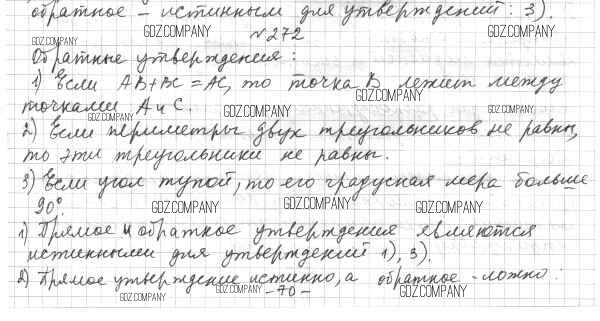 обратное – истинным для утверждений: 3).
GDZ.COMPANY GDZ.COMPANY GDZ.COMPANY
№272
GDZ.COMPANY
Обратные утверждения:
1) Если AB+BC=AC, то точка B лежит между
GDZ.COMPANY
точками A и C. GDZ.COMPANY GDZ.COMPANY
GDZ.COMPANY
2) Если периметры двух треугольников не равны,
то эти треугольники не равны.
3) Если угол тупой, то его градусная мера больше
90°. GDZ.COMPANY GDZ.COMPANY GDZ.COMPANY
1) Прямое и обратное утверждения являются
истинными для утверждений 1), 3).
2) Прямое утверждение истинно, а обратное – ложно:
GDZ.COMPANY GDZ.COMPANY –70– GDZ.COMPANY